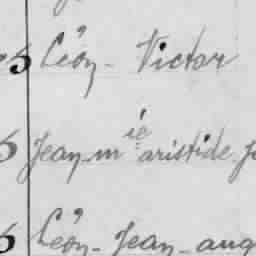 5 Léon - Victor
5 Jean-m ie aristide
5 Léon - Jean - aug